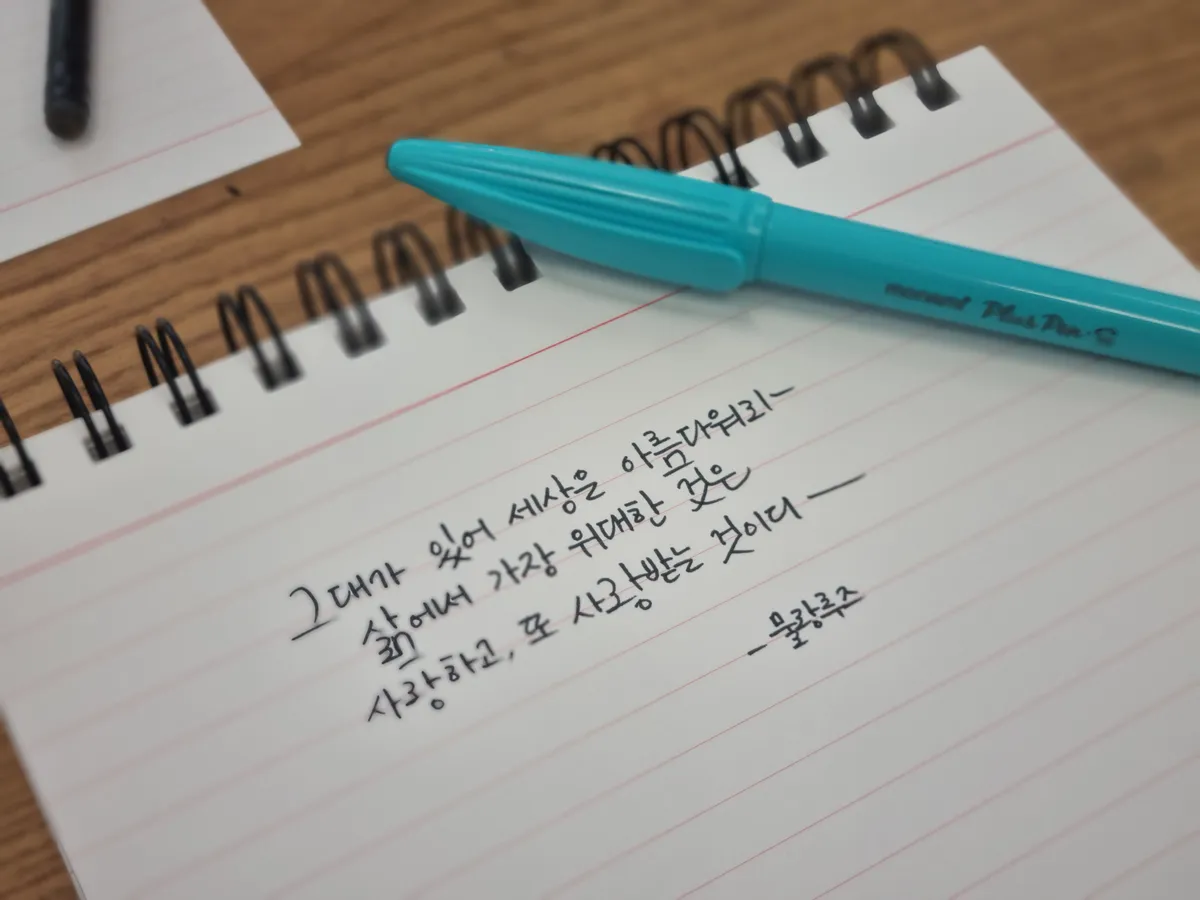 monami Plus Pen-S
그대가 있어 세상은 아름다워라~
삶에서 가장 위대한 것은
사랑하고, 또 사랑받는 것이다 —
- 물랑루즈